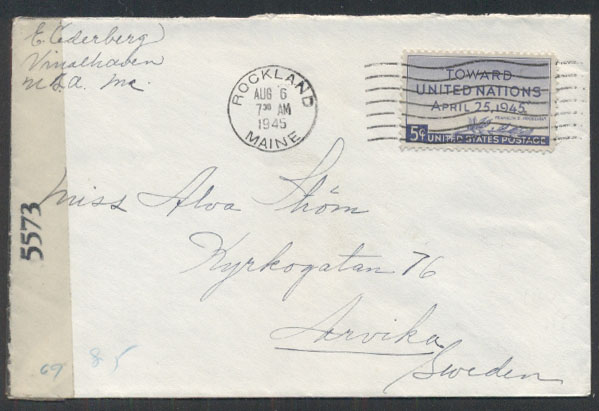 E. Cederberg
Vinalhaven
U.S.A. Me.
ROCKLAND
AUG 6
7:30 AM
1945
MAINE
TOWARD
UNITED NATIONS
APRIL 25, 1945
FRANKLIN D. ROOSEVELT
5¢ UNITED STATES POSTAGE
Miss Alva Ström
Kyrkogatan 76
Arvika
Sweden
5573
69 85